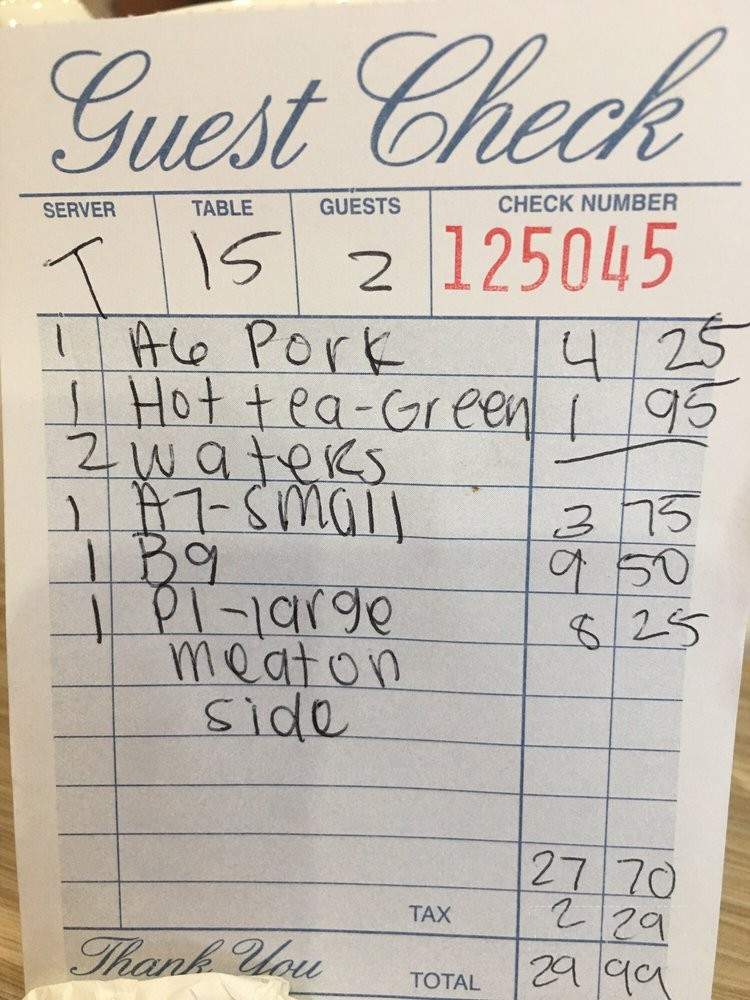 Guest Check
SERVER TABLE GUESTS CHECK NUMBER
T 15 2 125045
1 A6 Pork 4 25
1 Hot tea-Green 1 95
2 waters —
1 A7-small 3 75
1 B9 9 50
1 P1-large 8 25
meat on
side
27 70
TAX 2 29
Thank You TOTAL 29 99